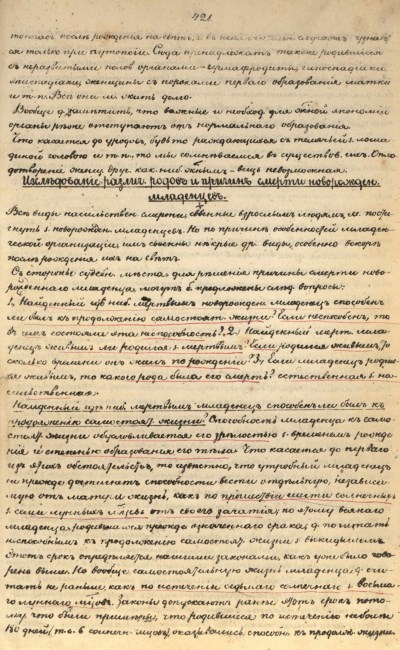 421
тотчасъ послѣ рожденія на свѣтъ, а въ
ся только при аутопсіи. Сюда принадлежатъ также родившіеся
съ неразвитыми полов. органами – гермафродиты, гипоспадіаки
эписпадіаки, женщины съ пороками перваго образованія матки
и т. п. Всѣ они мо. жить долго.
Вообще д. замѣтить, что важные и необход. для жизнен. экономіи
органы рѣже отступаютъ отъ нормальнаго образованія.
Что касается до уродовъ, будто рождающихся съ телячьей, лоша
диной головою и т. п., то мы сомнѣваемся въ существов. ихъ. Опло
дотвореніе женщ. другъ. какъ ниб. живымъ – вещь невозможная.
Изслѣдованіе различ. родовъ и причинъ смерти новорожден.
младенцевъ.
Всѣ виды насильствен. смерти, свойственные взрослымъ людямъ, м. пости
гнуть и новорожден. младенцевъ. Но по причинѣ особенностей младен
ческой организаціи, имъ свойственны нѣкрые др. виды, особенно вскорѣ
послѣ рожденія ихъ на свѣтъ.
Съ стороны судебн. мѣста для рѣшенія причины смерти ново
рожденнаго младенца могутъ б. предложены слѣд. вопросы:
1, Найденный гдѣ ниб. мертвымъ новорожден. младенецъ способенъ
ли былъ къ продолженію самостоят. жизни? Если неспособенъ, то
въ чемъ состояла эта неспособность? 2, Найденный мерт. мла
денецъ живымъ ли родился и. мертвымъ? Если родился живымъ, то
сколько времени онъ жилъ по рожденіи? 3, Если младенецъ родил
ся живымъ, то какого рода была его смерть? естественная и. на
сильственная.
Найденный гдѣ ниб. мертвымъ младенецъ способенъ ли былъ къ
продолженію самостоят. жизни? Способность младенца къ само
стоят. жизни обусловливается его зрѣлостью и. временемъ рожде
нія и степенью образованія его тѣла. Что касается до перваго
изъ этихъ обстоятельствъ, то извѣстно, что утробный младенецъ
не прежде достигаетъ способности вести отдѣльную, независи
мую отъ матери жизнь, какъ по прошествіи шести солнечныхъ
и. семи лунныхъ мѣсяцевъ отъ своего зачатія; по этому всякаго
младенца, родившагося прежде означеннаго срока, д. почитать
неспособнымъ къ продолженію самостоят. жизни и. выкидышемъ.
Этотъ срокъ опредѣляется нашими законами, какъ уже было гово
рено выше. Но вообще самостоятельную жизнь младенца д. счи
тать не раньше какъ по истеченіи седьмаго солнечнаго и. восьма
го луннаго мѣсяцовъ. Законы допускаютъ ранѣе этотъ срокъ пото
му, что были примѣры, что родившіеся по истеченіи
180 дней (т. е. 6 солнечн. мѣсяцовъ), оказывались способн. къ продолж. жизни